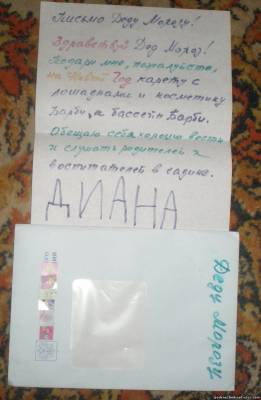 Письмо Деду Морозу!
Здравствуй Дед Мороз!
Подари мне, пожалуйста,
на Новый Год карету с
лошадками и косметику
Барби, и бассейн Барби.
Обещаю себя хорошо вести
и слушать родителей и
воспитателей в садике.
ДИАНА
Деду Морозу